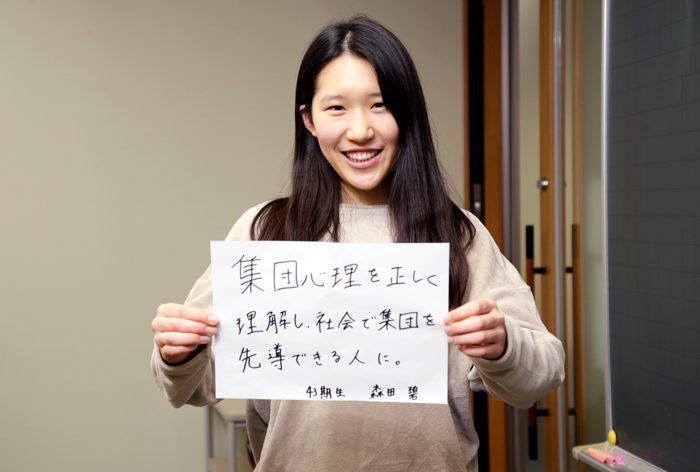 集団心理を正しく
理解し、社会で集団を
先導できる人に。
43期生 森田 碧